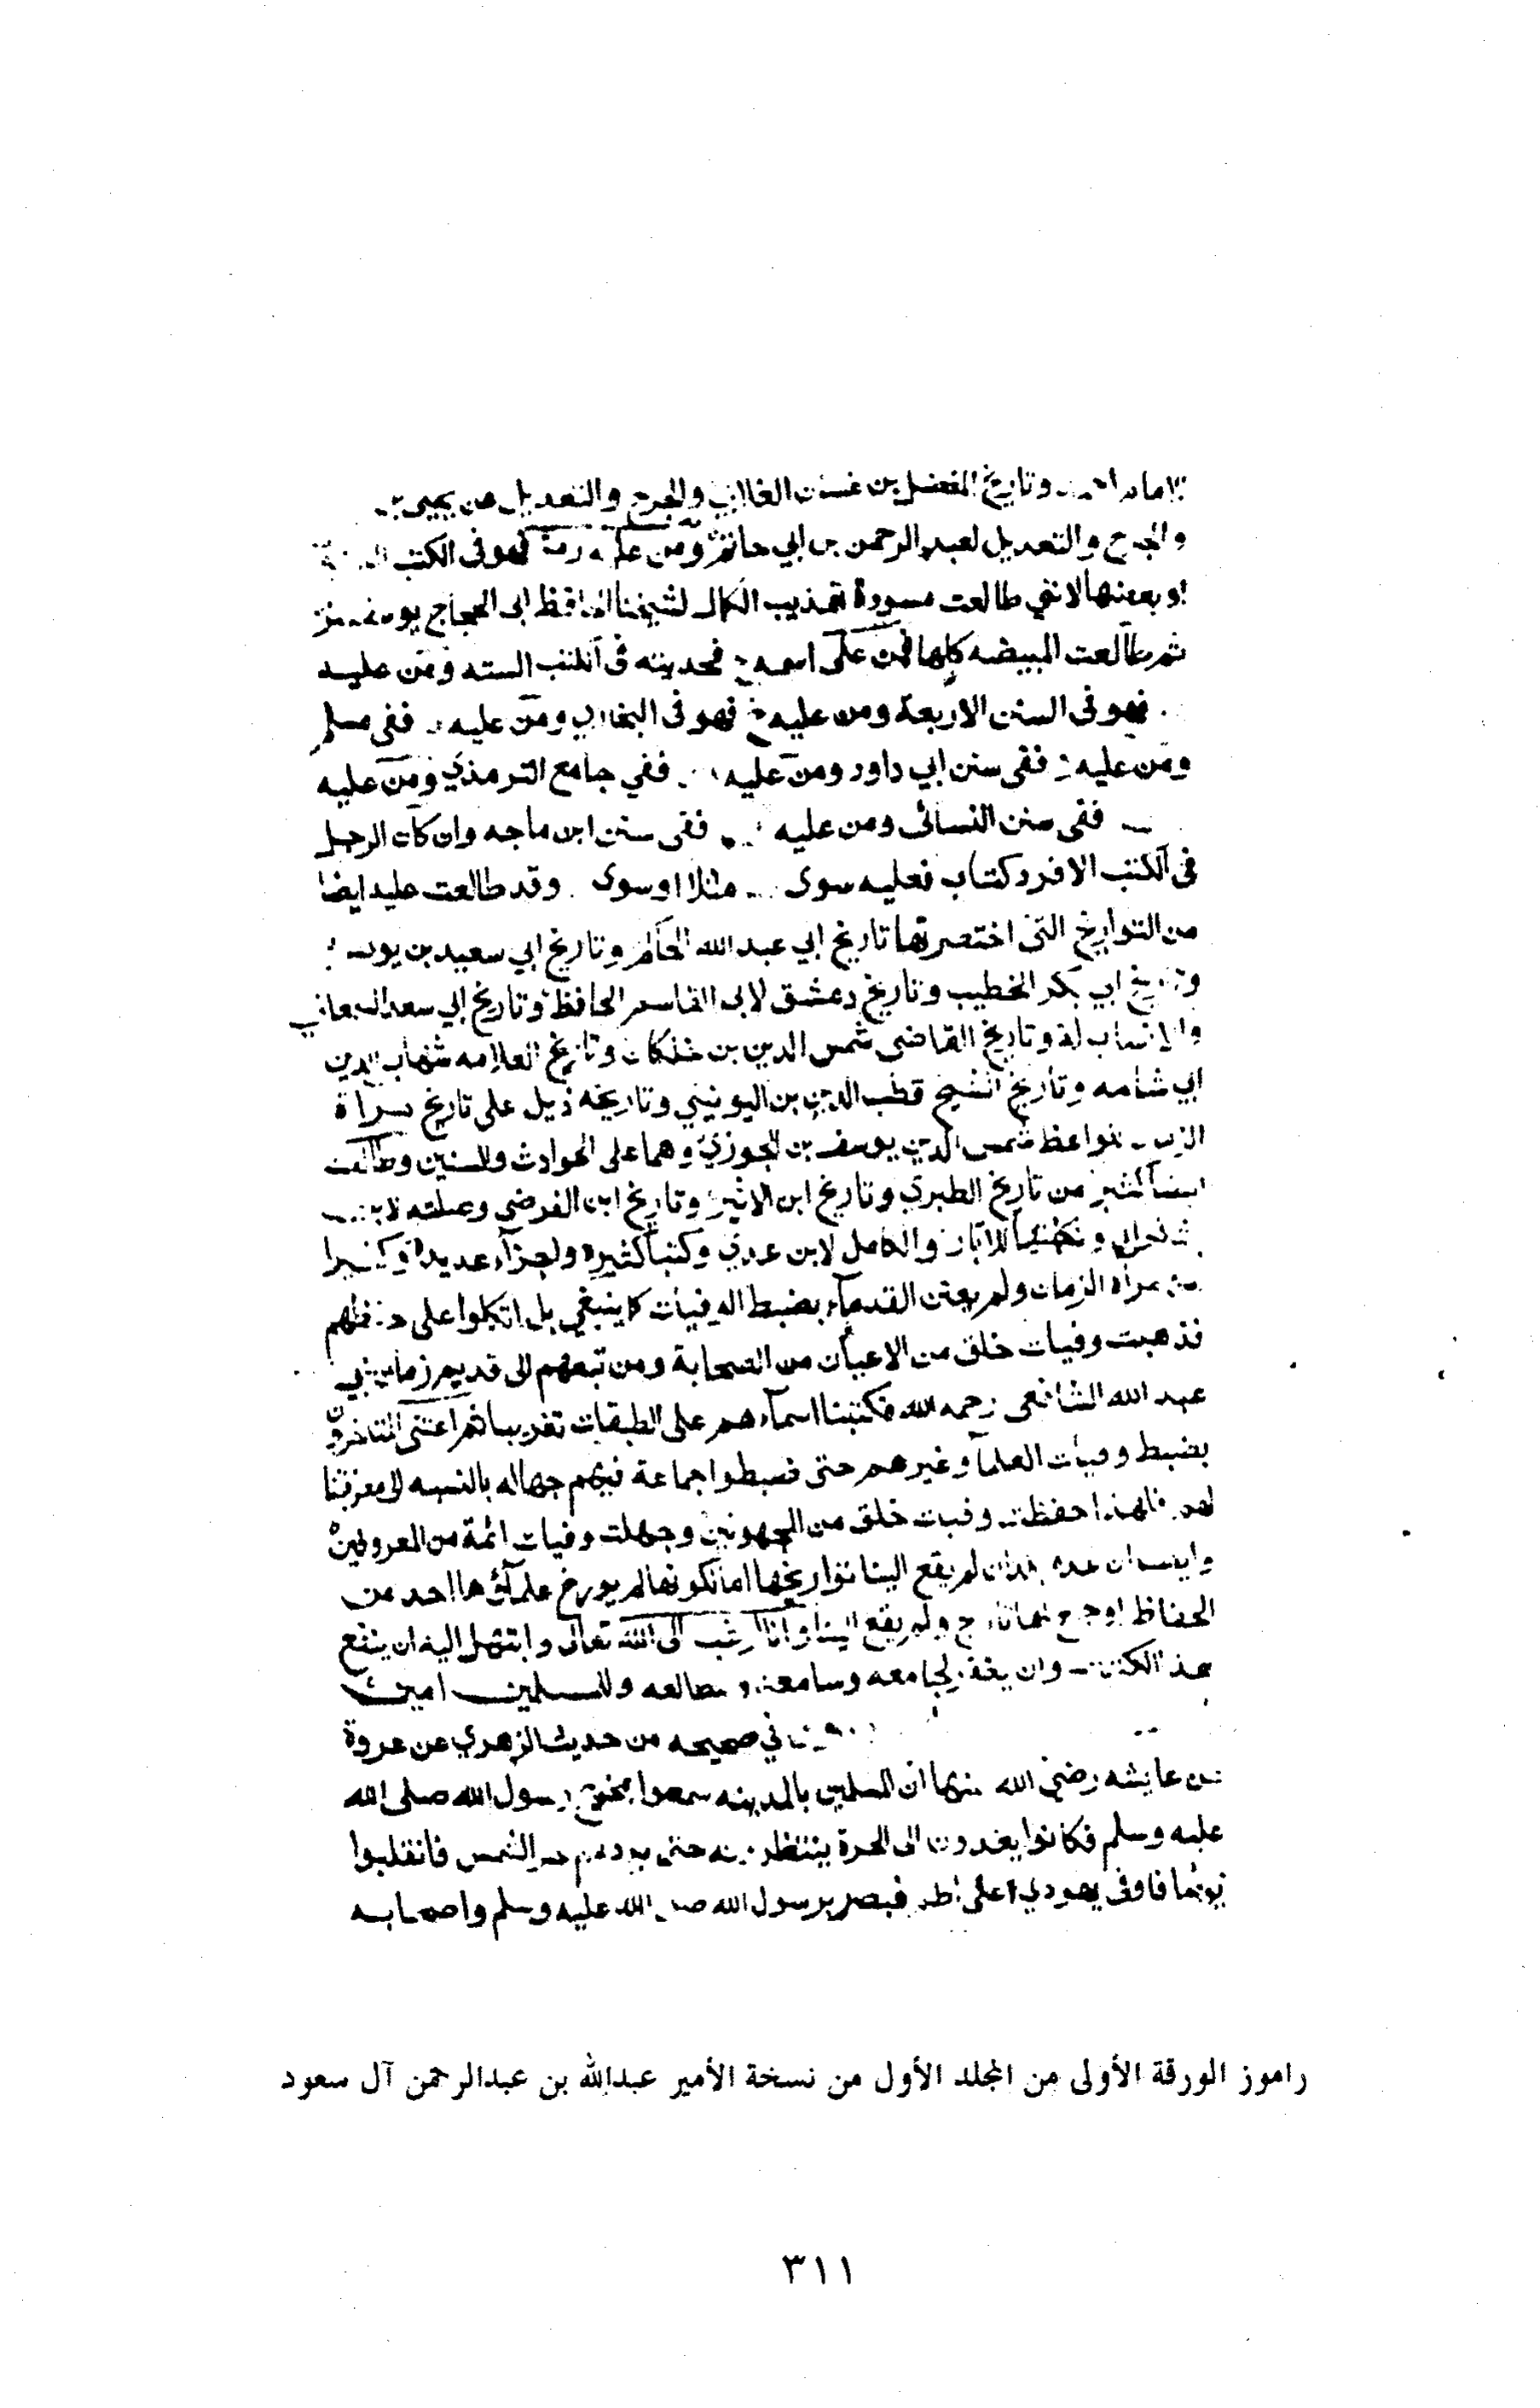 وتاريخ المفضل بن غسان الغلابي والجرح والتعديل عن يحيى
والجرح والتعديل لعبد الرحمن بن ابي حاتم ومن عليه رمز فهو في الكتب
او بعضها لانني طالعت مسودة تهذيب الكمال لشيخنا الحافظ ابي الحجاج يوسف
ثم طالعت المبيضه كلها فمن على اسمه فحديثه في الكتب السته ومن عليه
فهو في السنن الاربعة ومن عليه خ فهو في البخاري ومن عليه ففي مسلم
ومن عليه ففي سنن ابي داود ومن عليه ففي جامع الترمذي ومن عليه
ففي سنن النسائى ومن عليه ففي سنن ابن ماجه وان كان الرجل
في الكتب الا فرد كتاب فعليه سوى مثلا او سوى وقد طالعت عليه ايضا
من التواريخ التي اختصرتها تاريخ ابي عبد الله الحاكم وتاريخ ابي سعيد بن يونس
وتاريخ ابي بكر الخطيب وتاريخ دمشق لابي القاسم الحافظ وتاريخ ابي سعد السمعاني
والانساب له وتاريخ القاضي شمس الدين بن خلكان وتاريخ العلامه شهاب الدين
ابي شامه وتاريخ الشيخ قطب الدين بن اليونيني وتاريخه ذيل على تاريخ مرآة
الزمان للواعظ شمس الدين يوسف بن الجوزي وهما على الحوادث والسنين وطالعت
ايضا كثيرا من تاريخ الطبري وتاريخ ابن الاثير وتاريخ ابن الفرضي وصلته لابن
بشكوال وتكملتها للابار والكامل لابن عدي وكتبا كثيرة واجزآء عديدة وكثيرا
من مرآة الزمان ولم يعتن القدمآء بضبط الوفيات كما ينبغي بل اتكلوا على حفظهم
فذهبت وفيات خلق من الاعيان من الصحابة ومن تبعهم الى قديم زمان ابي
عبد الله الشافعي رحمه الله فكتبنا اسمآءهم على الطبقات تقريبا ثم اعتنى المتاخرون
بضبط وفيات العلمآ وغيرهم حتى ضبطوا جماعة فيهم جهاله بالنسبه الى معرفتنا
لهم فلهذا حفظت وفيات خلق من المجهولين وجهلت وفيات ائمة من المعروفين
وايضا فان عدة بلدان لم يقع الينا تواريخها اما لكونها لم يورخ علمآؤها احد من
الحفاظ او جمع لها تاريخ ولم يقع الينا وانا ارغب الى الله تعالى وابتهل اليه ان ينفع
بهذا الكتاب وان يغفر لجامعه وسامعه ومطالعه وللمسلمين امين
في صحيحه من حديث الزهري عن عروة
عن عايشه رضي الله عنها ان المسلمين بالمدينه سمعوا بمخرج رسول الله صلى الله
عليه وسلم فكانوا يغدون الى الحرة ينتظرونه حتى يردهم حر الشمس فانقلبوا
يوما فاوفى يهودي على اطم فبصر برسول الله صلى الله عليه وسلم واصحابه
راموز الورقة الأولى من المجلد الأول من نسخة الأمير عبدالله بن عبدالرحمن آل سعود
٣١١